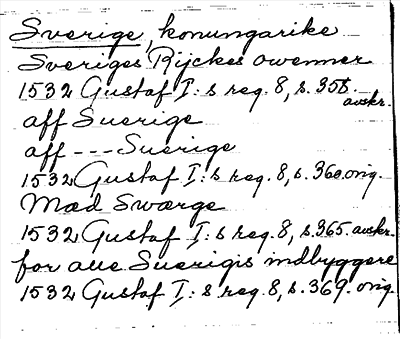 Sverige, konungarike
Sveriges Rijckes owenner
1532 Gustaf I:s reg. 8, s. 358. avskr.
aff Suerige
aff --- Suerige
1532 Gustaf I:s reg. 8, s. 360. orig.
Mæd Swærge
1532 Gustaf I:s reg. 8, s. 365. avskr.
for alle Suerigis indbyggere
1532 Gustaf I:s reg. 8, s. 369. orig.